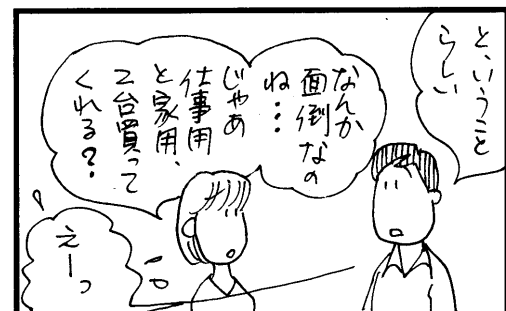 と、いうこと
らしい
なんか
面倒なの
ね・・・
じゃあ
仕事用
と家用、
2台買って
くれる?
えーっ